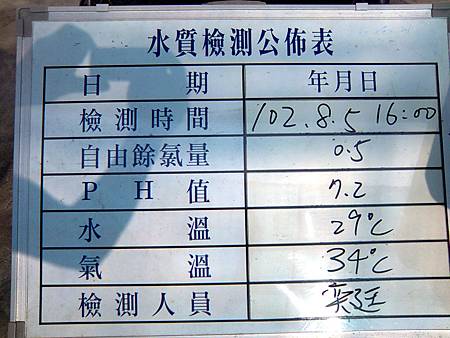 水質檢測公佈表
日期 年月日
檢測時間 102.8.5 16:00
自由餘氯量 0.5
PH值 7.2
水溫 29℃
氣溫 34℃
檢測人員 奕廷